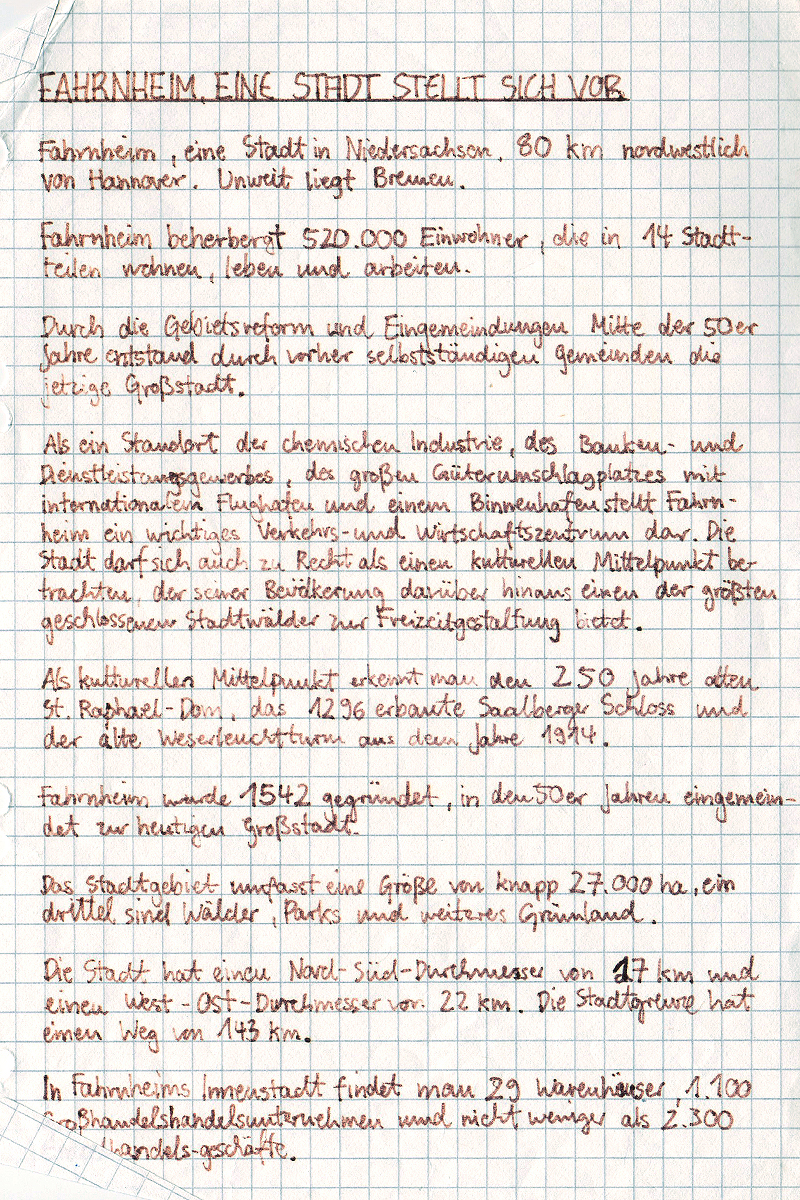 FAHRNHEIM, EINE STADT STELLT SICH VOR
Fahrnheim, eine Stadt in Niedersachsen, 80 km nordwestlich
von Hannover. Unweit liegt Bremen.
Fahrnheim beherbergt 520.000 Einwohner, die in 14 Stadt-
teilen wohnen, leben und arbeiten.
Durch die Gebietsreform und Eingemeindungen Mitte der 50er
Jahre entstand durch vorher selbstständigen Gemeinden die
jetzige Großstadt.
Als ein Standort der chemischen Industrie, des Banken- und
Dienstleistungsgewerbes, des großen Güterumschlagplatzes mit
internationalem Flughafen und einem Binnenhafen stellt Fahrn-
heim ein wichtiges Verkehrs- und Wirtschaftszentrum dar. Die
Stadt darf sich auch zu Recht als einen kulturellen Mittelpunkt be-
trachten, der seiner Bevölkerung darüber hinaus einen der größten
geschlossenen Stadtwälder zur Freizeitgestaltung bietet.
Als kulturellen Mittelpunkt erkennt man den 250 Jahre alten
St. Raphael-Dom, das 1296 erbaute Saalberger Schloss und
der alte Weserleuchtturm aus dem Jahre 1914.
Fahrnheim wurde 1542 gegründet, in den 50er Jahren eingemein-
det zur heutigen Großstadt.
Das Stadtgebiet umfasst eine Größe von knapp 27.000 ha, ein
drittel sind Wälder, Parks und weiteres Grünland.
Die Stadt hat einen Nord-Süd-Durchmesser von 17 km und
einen West-Ost-Durchmesser von 22 km. Die Stadtgrenze hat
einen Weg von 143 km.
In Fahrnheims Innenstadt findet man 29 Warenhäuser, 1.100
Großhandelshandelsunternehmen und nicht weniger als 2.300
handels-geschäfte.